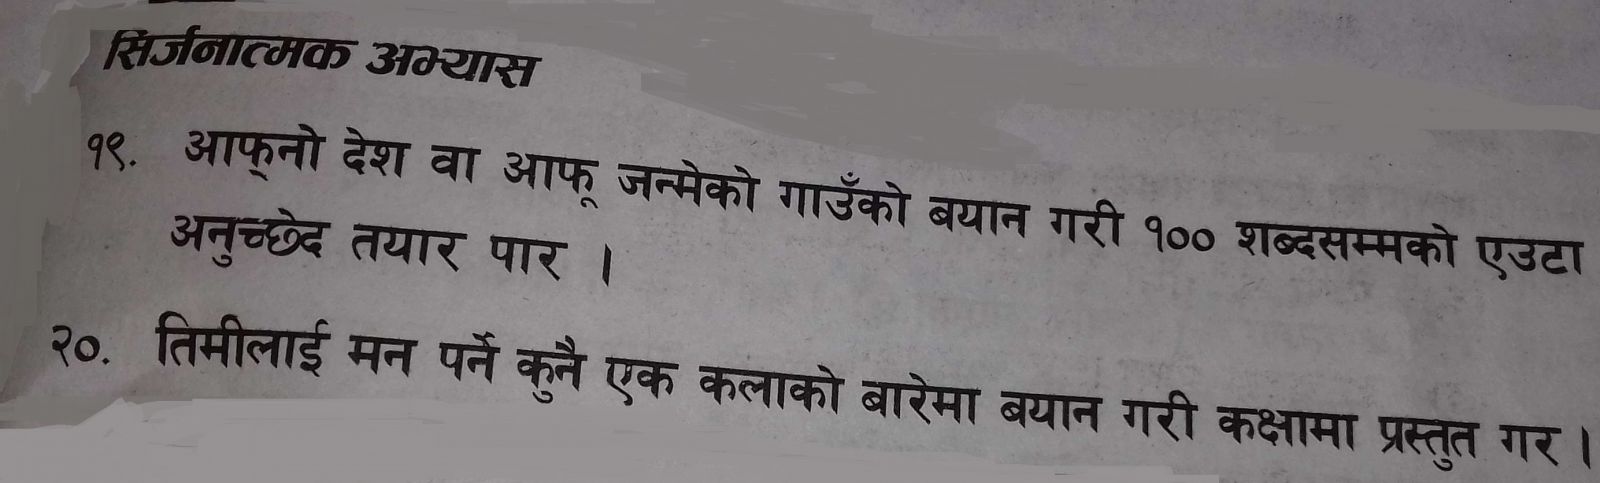 सिर्जनात्मक अभ्यास
१९. आफ्नो देश वा आफू जन्मेको गाउँको बयान गरी १०० शब्दसम्मको एउटा
अनुच्छेद तयार पार ।
२०. तिमीलाई मन पर्ने कुनै एक कलाको बारेमा बयान गरी कक्षामा प्रस्तुत गर ।